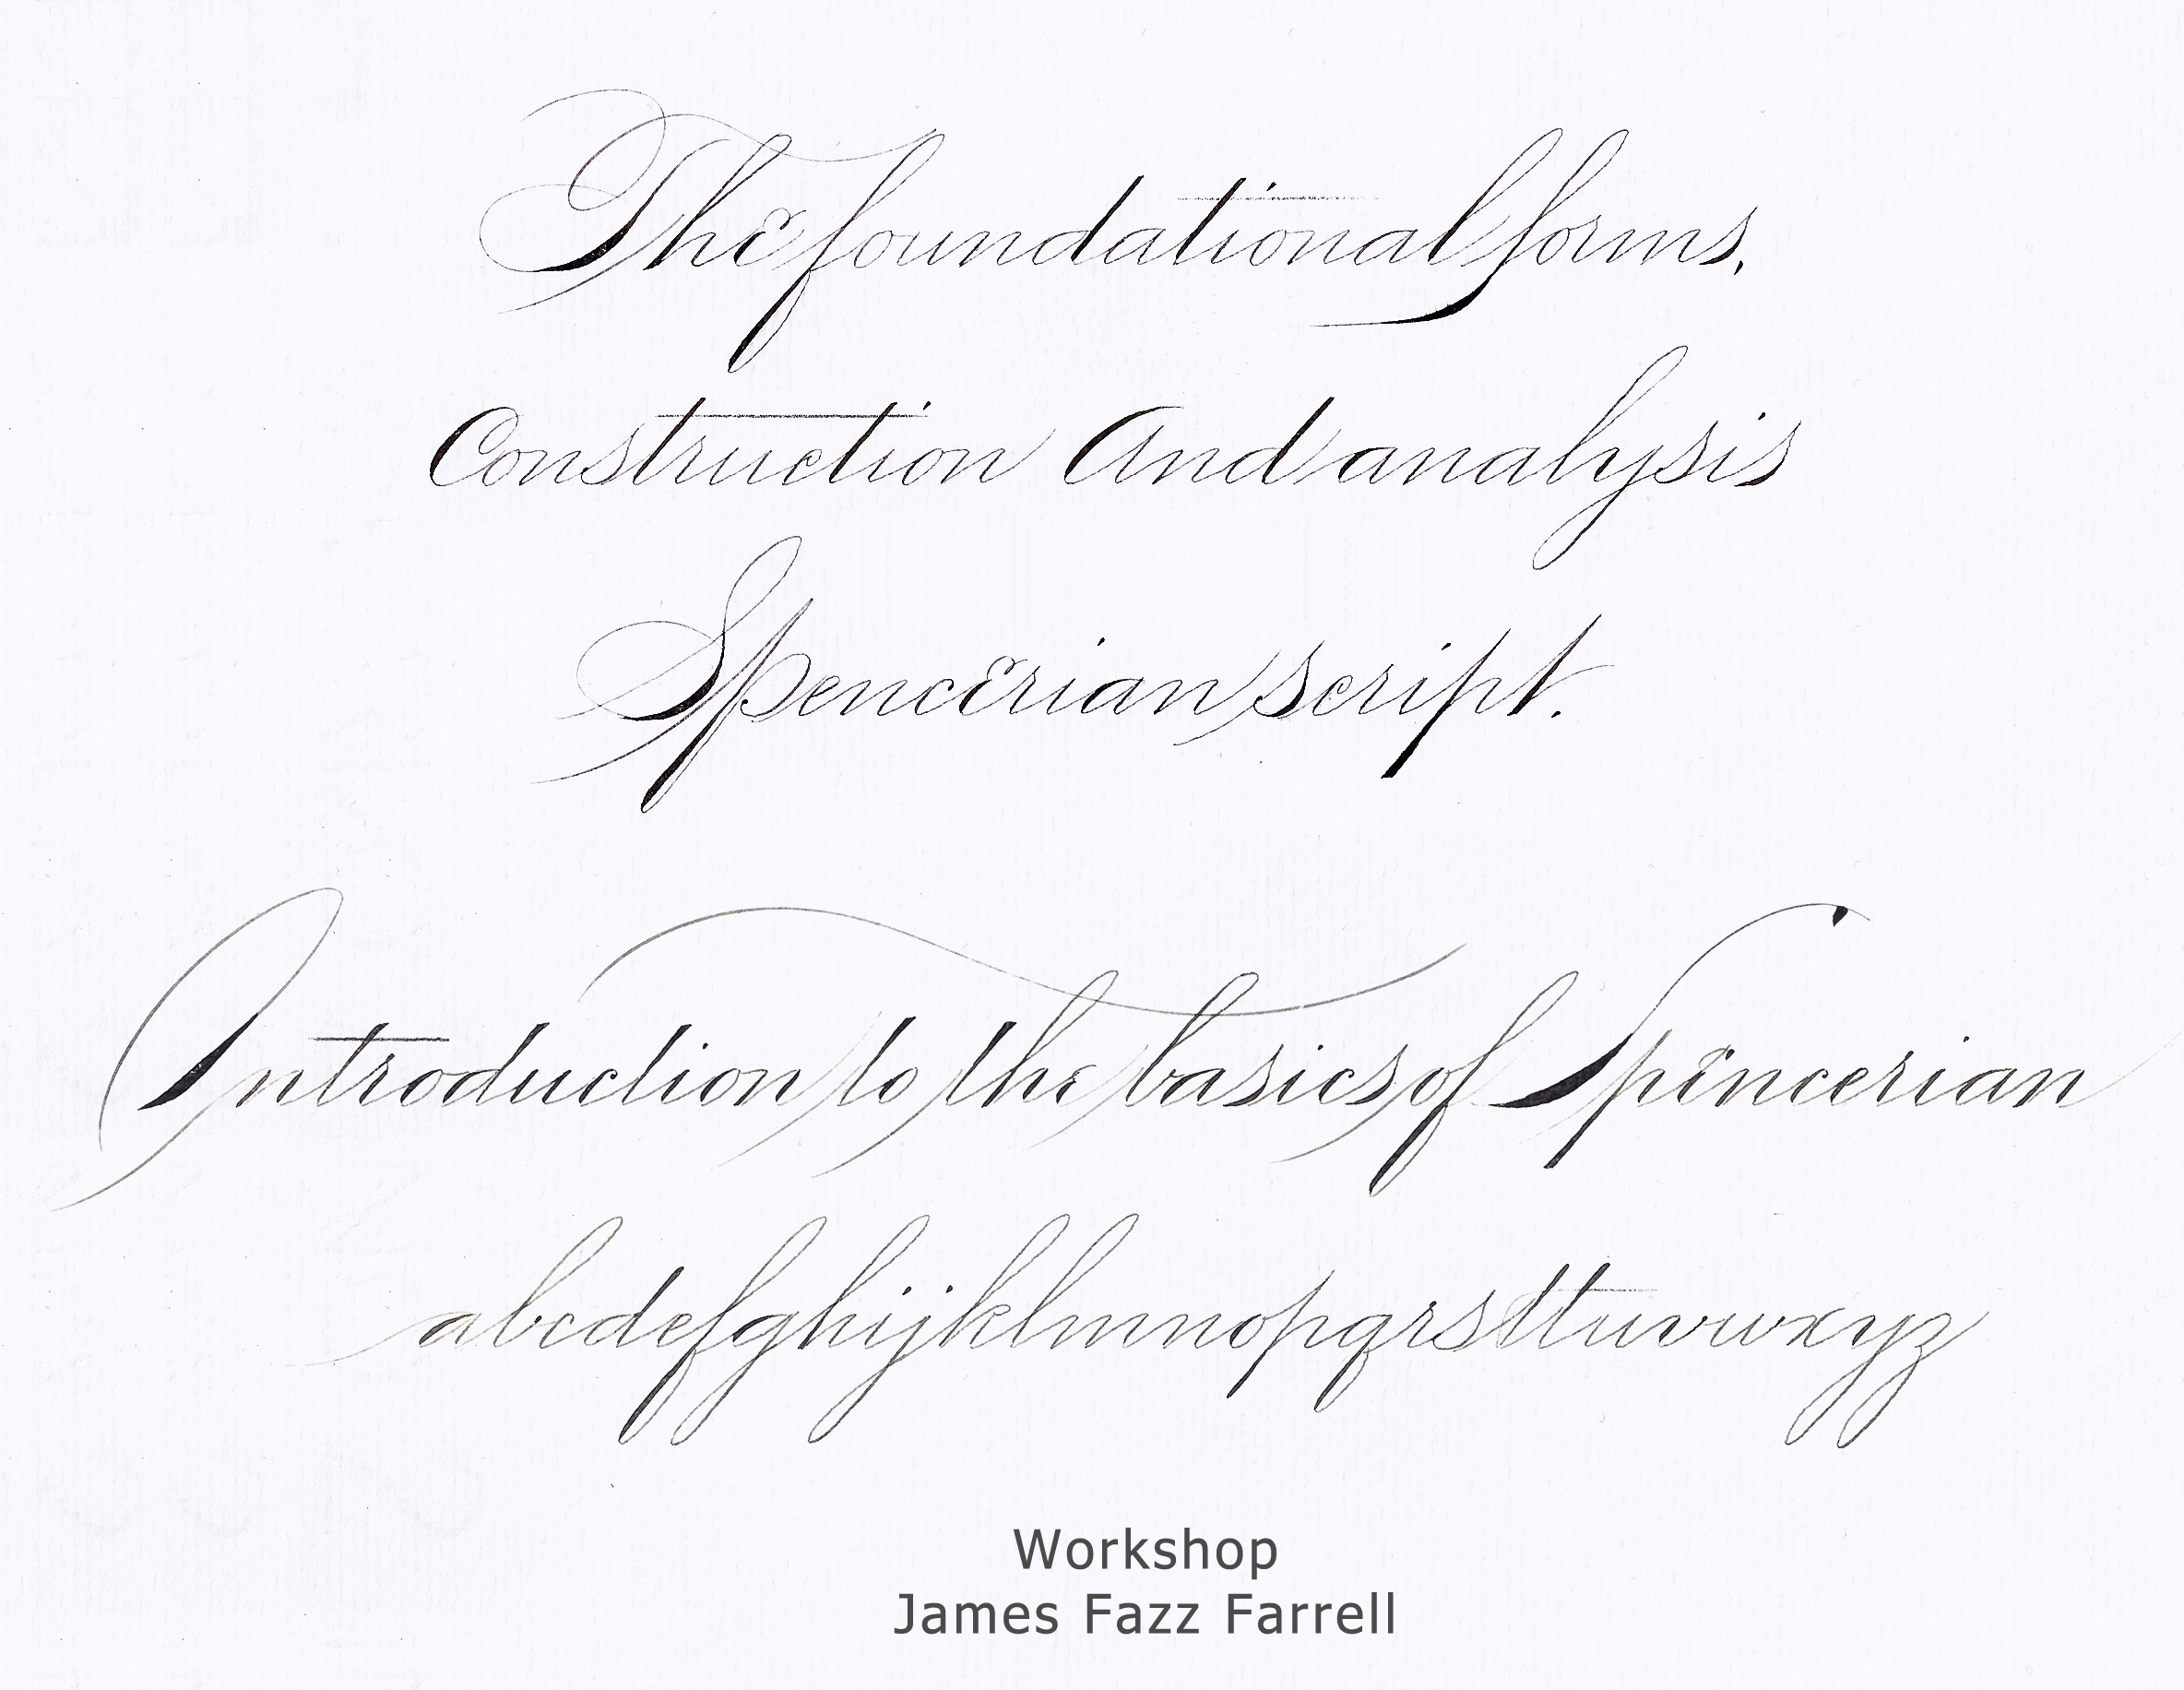 The foundational forms,
Construction And analysis
Spencerian script.
Introduction to the basics of Spencerian
abcdefghijklmnopqrsttuvwxyz
Workshop
James Fazz Farrell